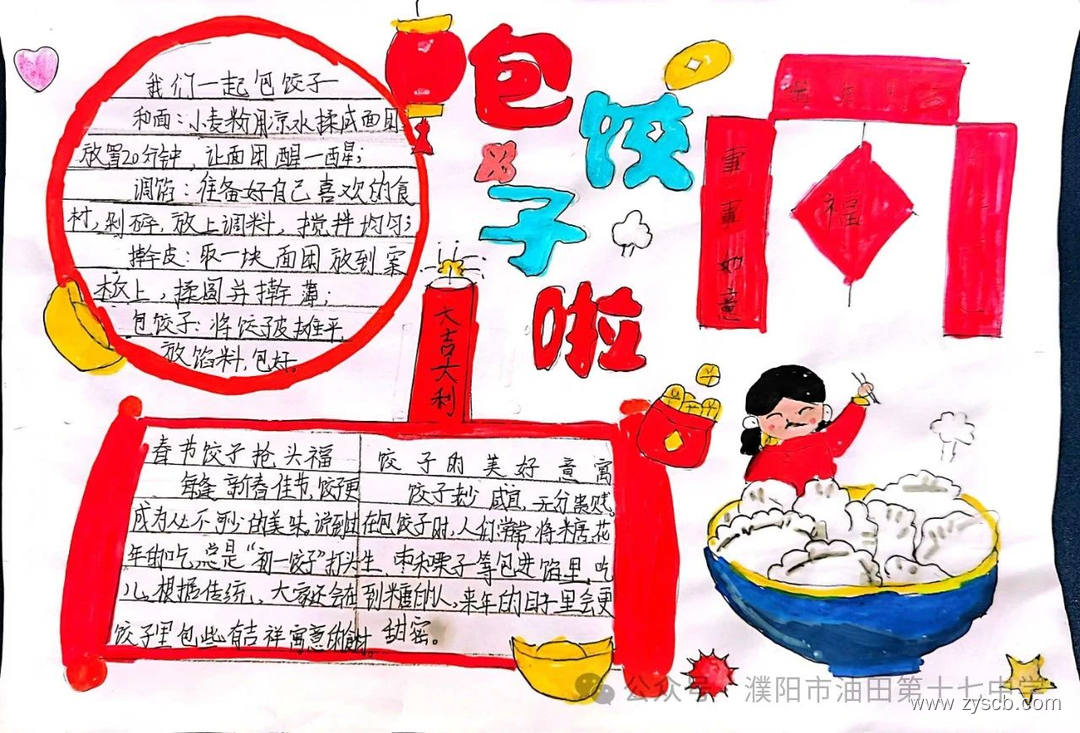 包饺子啦
我们一起包饺子
和面：小麦粉用凉水揉成面团
放置20分钟，让面团醒一醒；
调馅：准备好自己喜欢的食
材，剁碎，放上调料，搅拌均匀；
擀皮：取一块面团放到案
板上，揉圆并擀薄；
包饺子：将饺子皮摊平，
放馅料，包好。
大吉大利
事事如意
福
春节饺子抢头福
每逢新春佳节，饺子更
成为必不可少的美味。说到团
年的吃，总是“初一饺子”打头
儿。根据传统，大家还会在
饺子里包些有吉祥寓意的食材。
饺子的美好意寓
饺子老少咸宜，无分贵贱。
在包饺子时，人们常常将糖、花
生、枣和栗子等包进馅里。吃
到糖的人，来年的日子里会更
甜蜜。
公众号 · 濮阳市油田第十七中学
www.zyscb.com